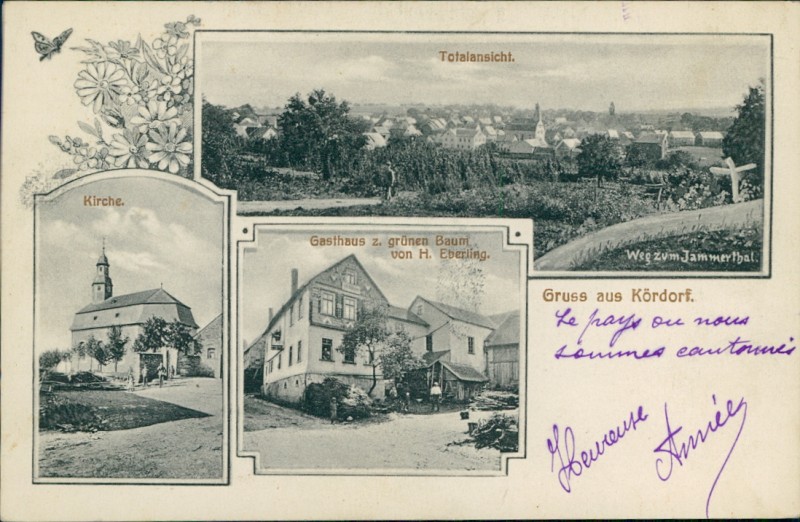 Totalansicht.
Kirche.
Gasthaus z. grünen Baum
von H. Eberling.
Weg zum Jammerthal.
Gruss aus Kördorf.
Le pays ou nous
sommes cantonnés
Heureuse
Année